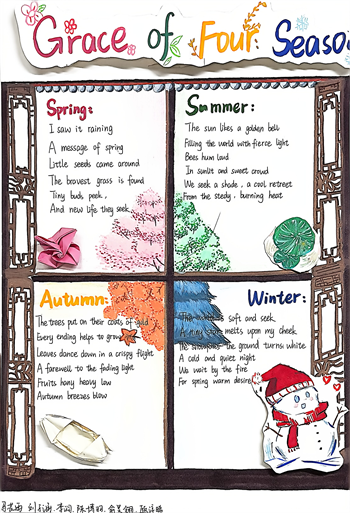 Grace of Four Seaso
Spring:
I saw it raining
A message of spring
Little seeds came around
The bravest grass is found
Tiny buds peek,
And new life they seek
Summer:
The sun likes a golden bell
Filling the world with fierce light
Bees hum loud
In sunlit and sweet crowd
We seek a shade, a cool retreat
From the stedy, burning heat
Autumn:
The trees put on their coats of gold
Every ending helps to grow
Leaves dance down in a crispy flight
A farewell to the fading light
Fruits hang heavy low
Autumn breezes blow
Winter:
soft and seek
melts upon my cheek
the ground turns white
A cold and quiet night
We wait by the fire
For spring warm desire